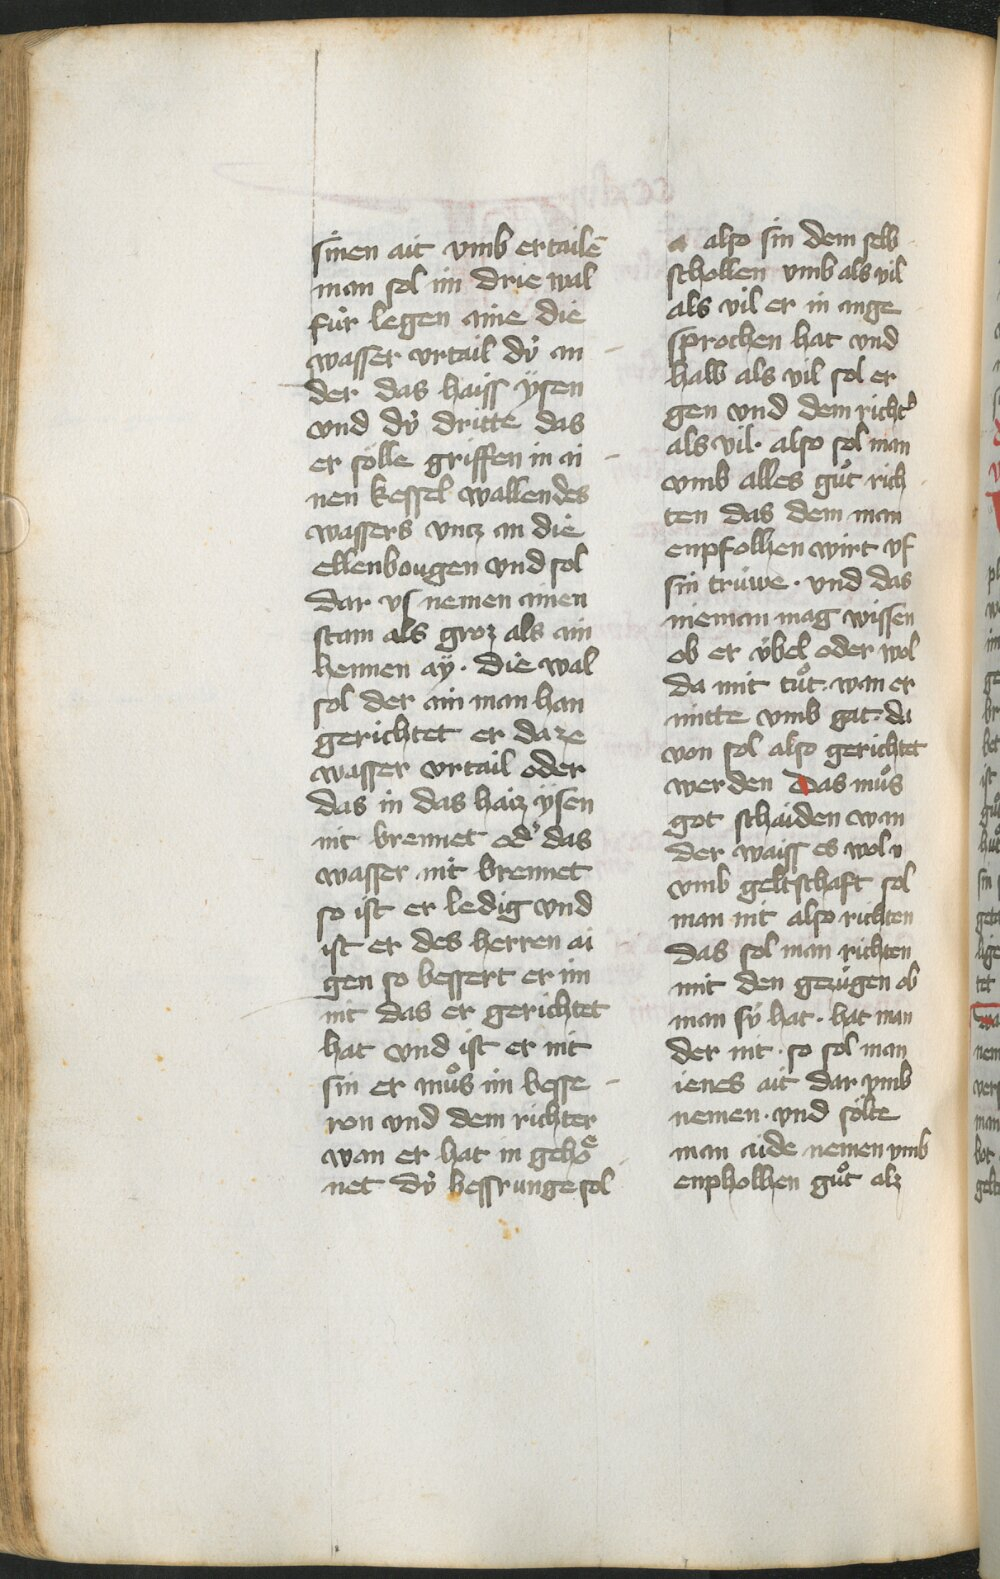 sinen ait vmb ertailē
man sol im drie wal
für legen aine die
wasser vrtail dÿ an
der das haiss ÿsen
vnd dÿ dritte das
er sölle griffen in ai
nen kessel wallendes
wassers vncz an die
ellenbougen vnd sol
dar vs nemen ainen
stain als groz als ain
hennen aÿ. die wal
sol der ain man han
gerichtet er da ze
wasser vrtail oder
das in das haiz ÿsen
nit brennet od' das
wasser nit brennet
so ist er ledig vnd
ist er des herren ai
gen so bessert er im
nit das er gerichtet
hat vnd ist er nit
sin er muͦs im besse
ron vnd dem richter
wan er hat in gehoͤ
net dÿ bessrunge sol
also sin dem selb
schollen vmb als vil
als vil er in ange
sprochen hat vnd
halb als vil sol er
gen vnd dem richt'
als vil. also sol man
vmb alles guͦt rich
ten das dem man
enpfolhen wirt vf
sin trüwe. vnd das
nieman mag wissen
ob er vbel oder wol
da mit tuͦt. wan er
mitte vmb gat. da
von sol also gerichtet
werden Das muͦs
got schaiden wan
der waiss es wol
vmb geltschaft sol
man nit also richten
das sol man richten
mit den gezügen ob
man sÿ hat. hat man
der nit. so sol man
ienes ait dar vmb
nemen. vnd sölte
man aide nemen vmb
enpholhen guͦt alz